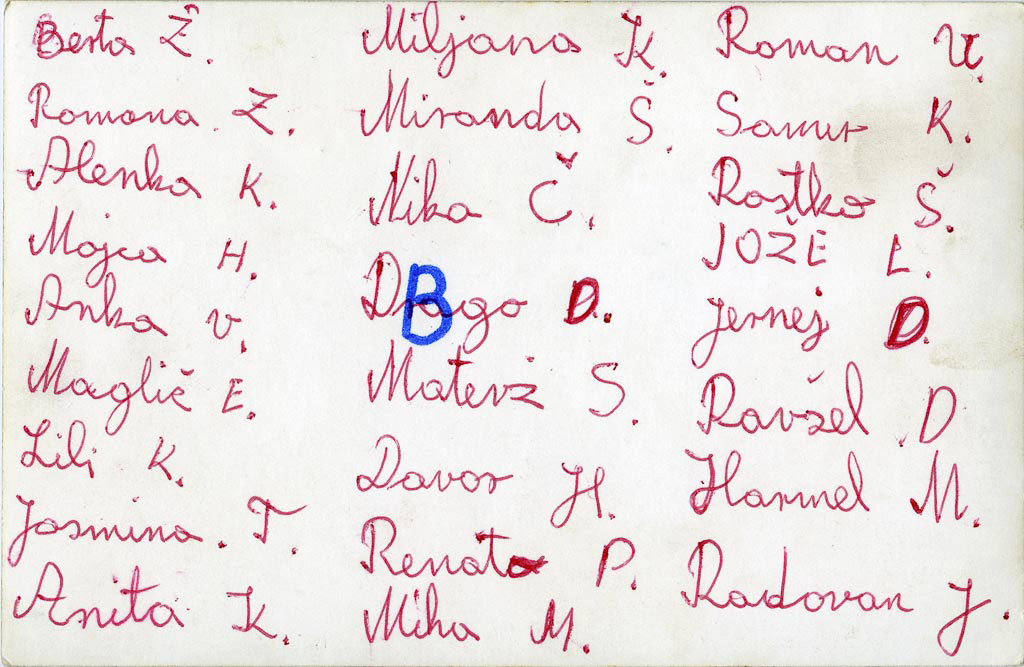 Berta Ž.
Romana Z.
Alenka K.
Mojca H.
Anka V.
Maglič E.
Lili K.
Jasmina T.
Anita K.
Miljana K.
Miranda Š.
Nika Č.
Drago D.
B
Matevž S.
Davor H.
Renato P.
Miha M.
Roman U.
Samir K.
Rastko Š.
JOŽE L.
Jernej D.
Ravžel D
Harmel M.
Radovan J.